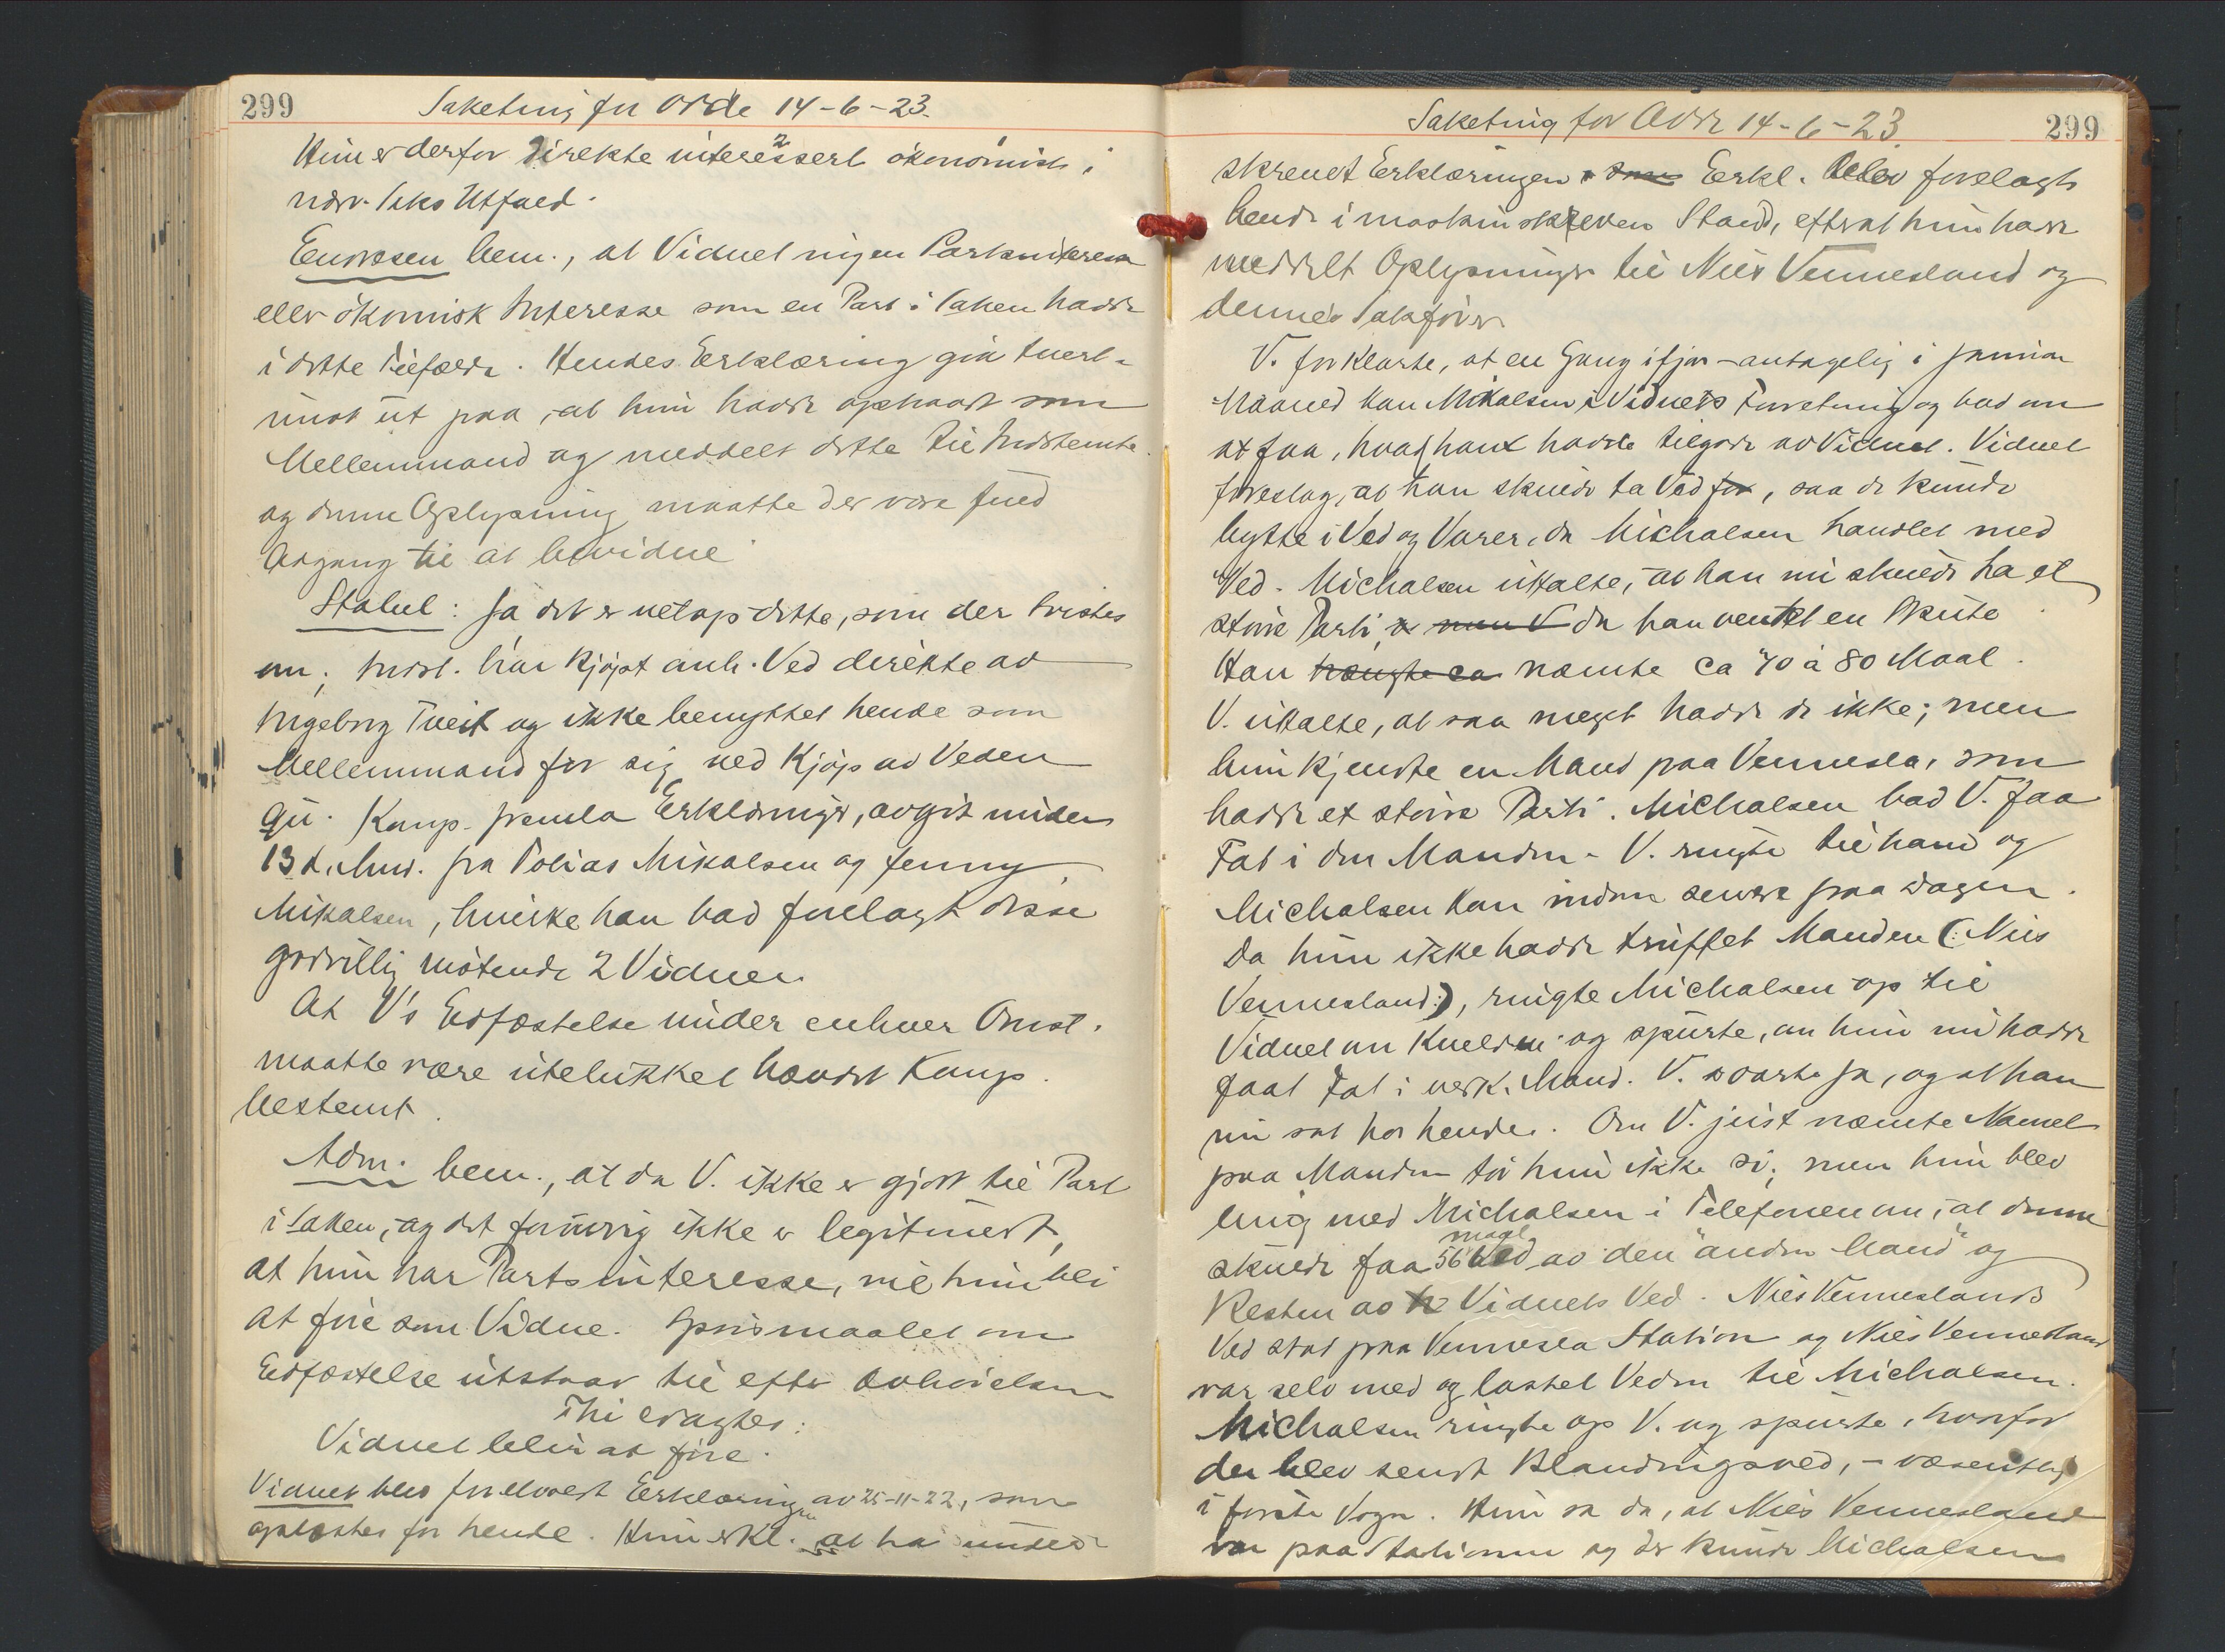 299 Saketing for Odde 14-6-23.
Hun er derfor direkte interessert økonomisk i
nærv. Saks Utfald.
Enoksen bem., at Vidnet ingen Partsinteresse
eller økonomisk Interesse som en Part i Saken hadde
i dette Tilfælde. Hendes Erklæring gik tvert-
imot ut paa, at hun hadde optraadt som
Mellemmand og meddelt dette til Indstevnte
og denne Oplysning maatte der være fuld
Adgang til at bevidne
Stabel: Ja det er netop dette, som der tvistes
om; Indst. har kjøpt anh. Ved direkte av
Ingeborg Tveit og ikke benyttet hende som
Mellemmand for sig ved Kjøp av Veden
Komp. fremla Erklæringer, avgit under
13 d. Mnd. fra Tobias Mikalsen og Jenny
Mikalsen, hvilke han bad forelagt disse
godvillig møtende 2 Vidner.
At V's Edfæstelse under enhver Omst.
maatte være utelukket hævdet Komp.
bestemt.
Adm. bem., at da V. ikke er gjort til Part
i Saken, og det forøvrig ikke er legitimert,
at hun har Partsinteresse, vil hun bli
at føre som Vidne. Spørsmaalet om
Edfæstelse utstaar til efter avhørelsen
Thi eragtes:
Vidnet blir at føre.
Vidnet blev forelæst Erklæringen av 25-11-22, som
oplæstes for hende. Hun erkl. at ha under-
Saketing for Odde 14-6-23. 299
skrevet Erklæringen. Erkl. blev forelagt
hende i maskinskreven Stand, efterat hun hadde
meddelt Oplysninger til Nils Vennesland og
dennes Sakfører
V. forklarte, at en Gang ifjor - antagelig i Januar
Maaned kom Mikalsen i Vidnets Forretning og bad om
at faa, hvad han hadde tilgode av Vidnet. Vidnet
foreslog, at han skulde ta Ved for, saa de kunde
bytte i Ved og Varer, da Michalsen handlet med
Ved. Michalsen uttalte, at han nu skulde ha et
større Parti, da han ventet en Skute
Han trængte ca nævnte ca 70 à 80 Maal.
V. uttalte, at saa meget hadde de ikke; men
hun kjendte en Mand paa Vennesla, som
hadde et større Parti. Michalsen bad V. faa
Fat i den Manden - V. ringte til ham og
Michalsen kom indom senere paa Dagen.
Da hun ikke hadde truffet Manden (: Nils
Vennesland:), ringte Michalsen op til
Vidnet om Kvelden og spurte, om hun nu hadde
faat Fat i vedk. Mand. V. svarte ja, og at han
nu sat hos hende. Om V. just nævnte Navnet
paa Manden tør hun ikke si; men hun blev
enig med Michalsen i Telefonen om, at denne
skulde faa 56 maal Ved av den "anden Mand" og
Resten av Vidnets Ved. Nils Venneslands
Ved stod paa Vennesla Station og Nils Vennesland
var selv med og lastet Veden til Michalsen.
Michalsen ringte op V. og spurte, hvorfor
der blev sendt Blandingsved, - væsentlig
i første Vogn. Hun sa da, at Nils Vennesland
var paa Stationen og der kunde Michalsen